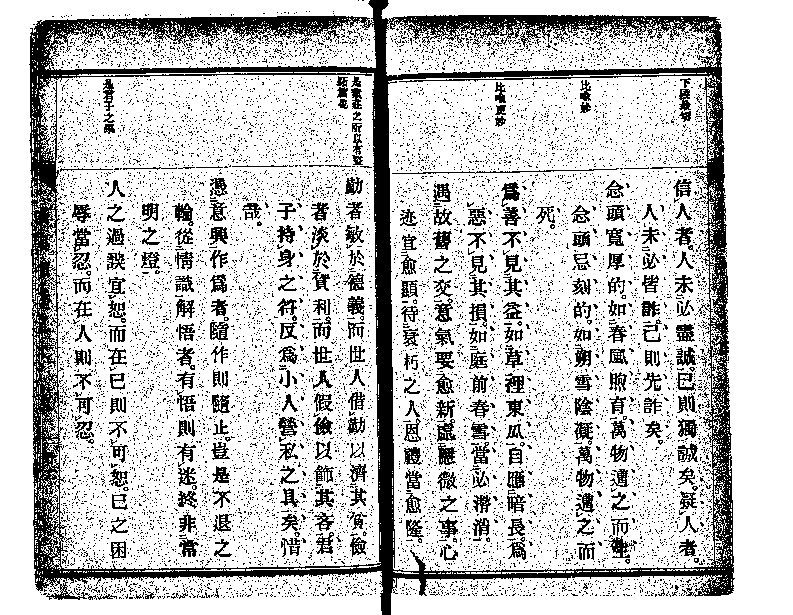 信人者。人未必盡誠。己則獨誠矣。疑人者。
人未必皆詐。己則先詐矣。
念頭寬厚的。如春風煦育。萬物遭之而生。
念頭忌刻的。如朔雪陰凝。萬物遭之而
死。
爲善不見其益。如草裡東瓜。自應暗長。爲
惡不見其損。如庭前春雪。當必潛消。
遇故舊之交。意氣要愈新。處隱微之事。心
迹宜愈顯。待衰朽之人。恩禮當愈隆。
勤者敏於德義。而世人借勤以濟其貧。儉
者淡於貨利。而世人假儉以飾其吝。君
子持身之符。反爲小人營私之具矣。惜
哉。
憑意興作爲者。隨作則隨止。豈是不退之
輪。從情識解悟者。有悟則有迷。終非常
明之燈。
人之過誤宜恕。而在己則不可恕。己之困
辱當忍。而在人則不可忍。
比喩妙
比喩更妙